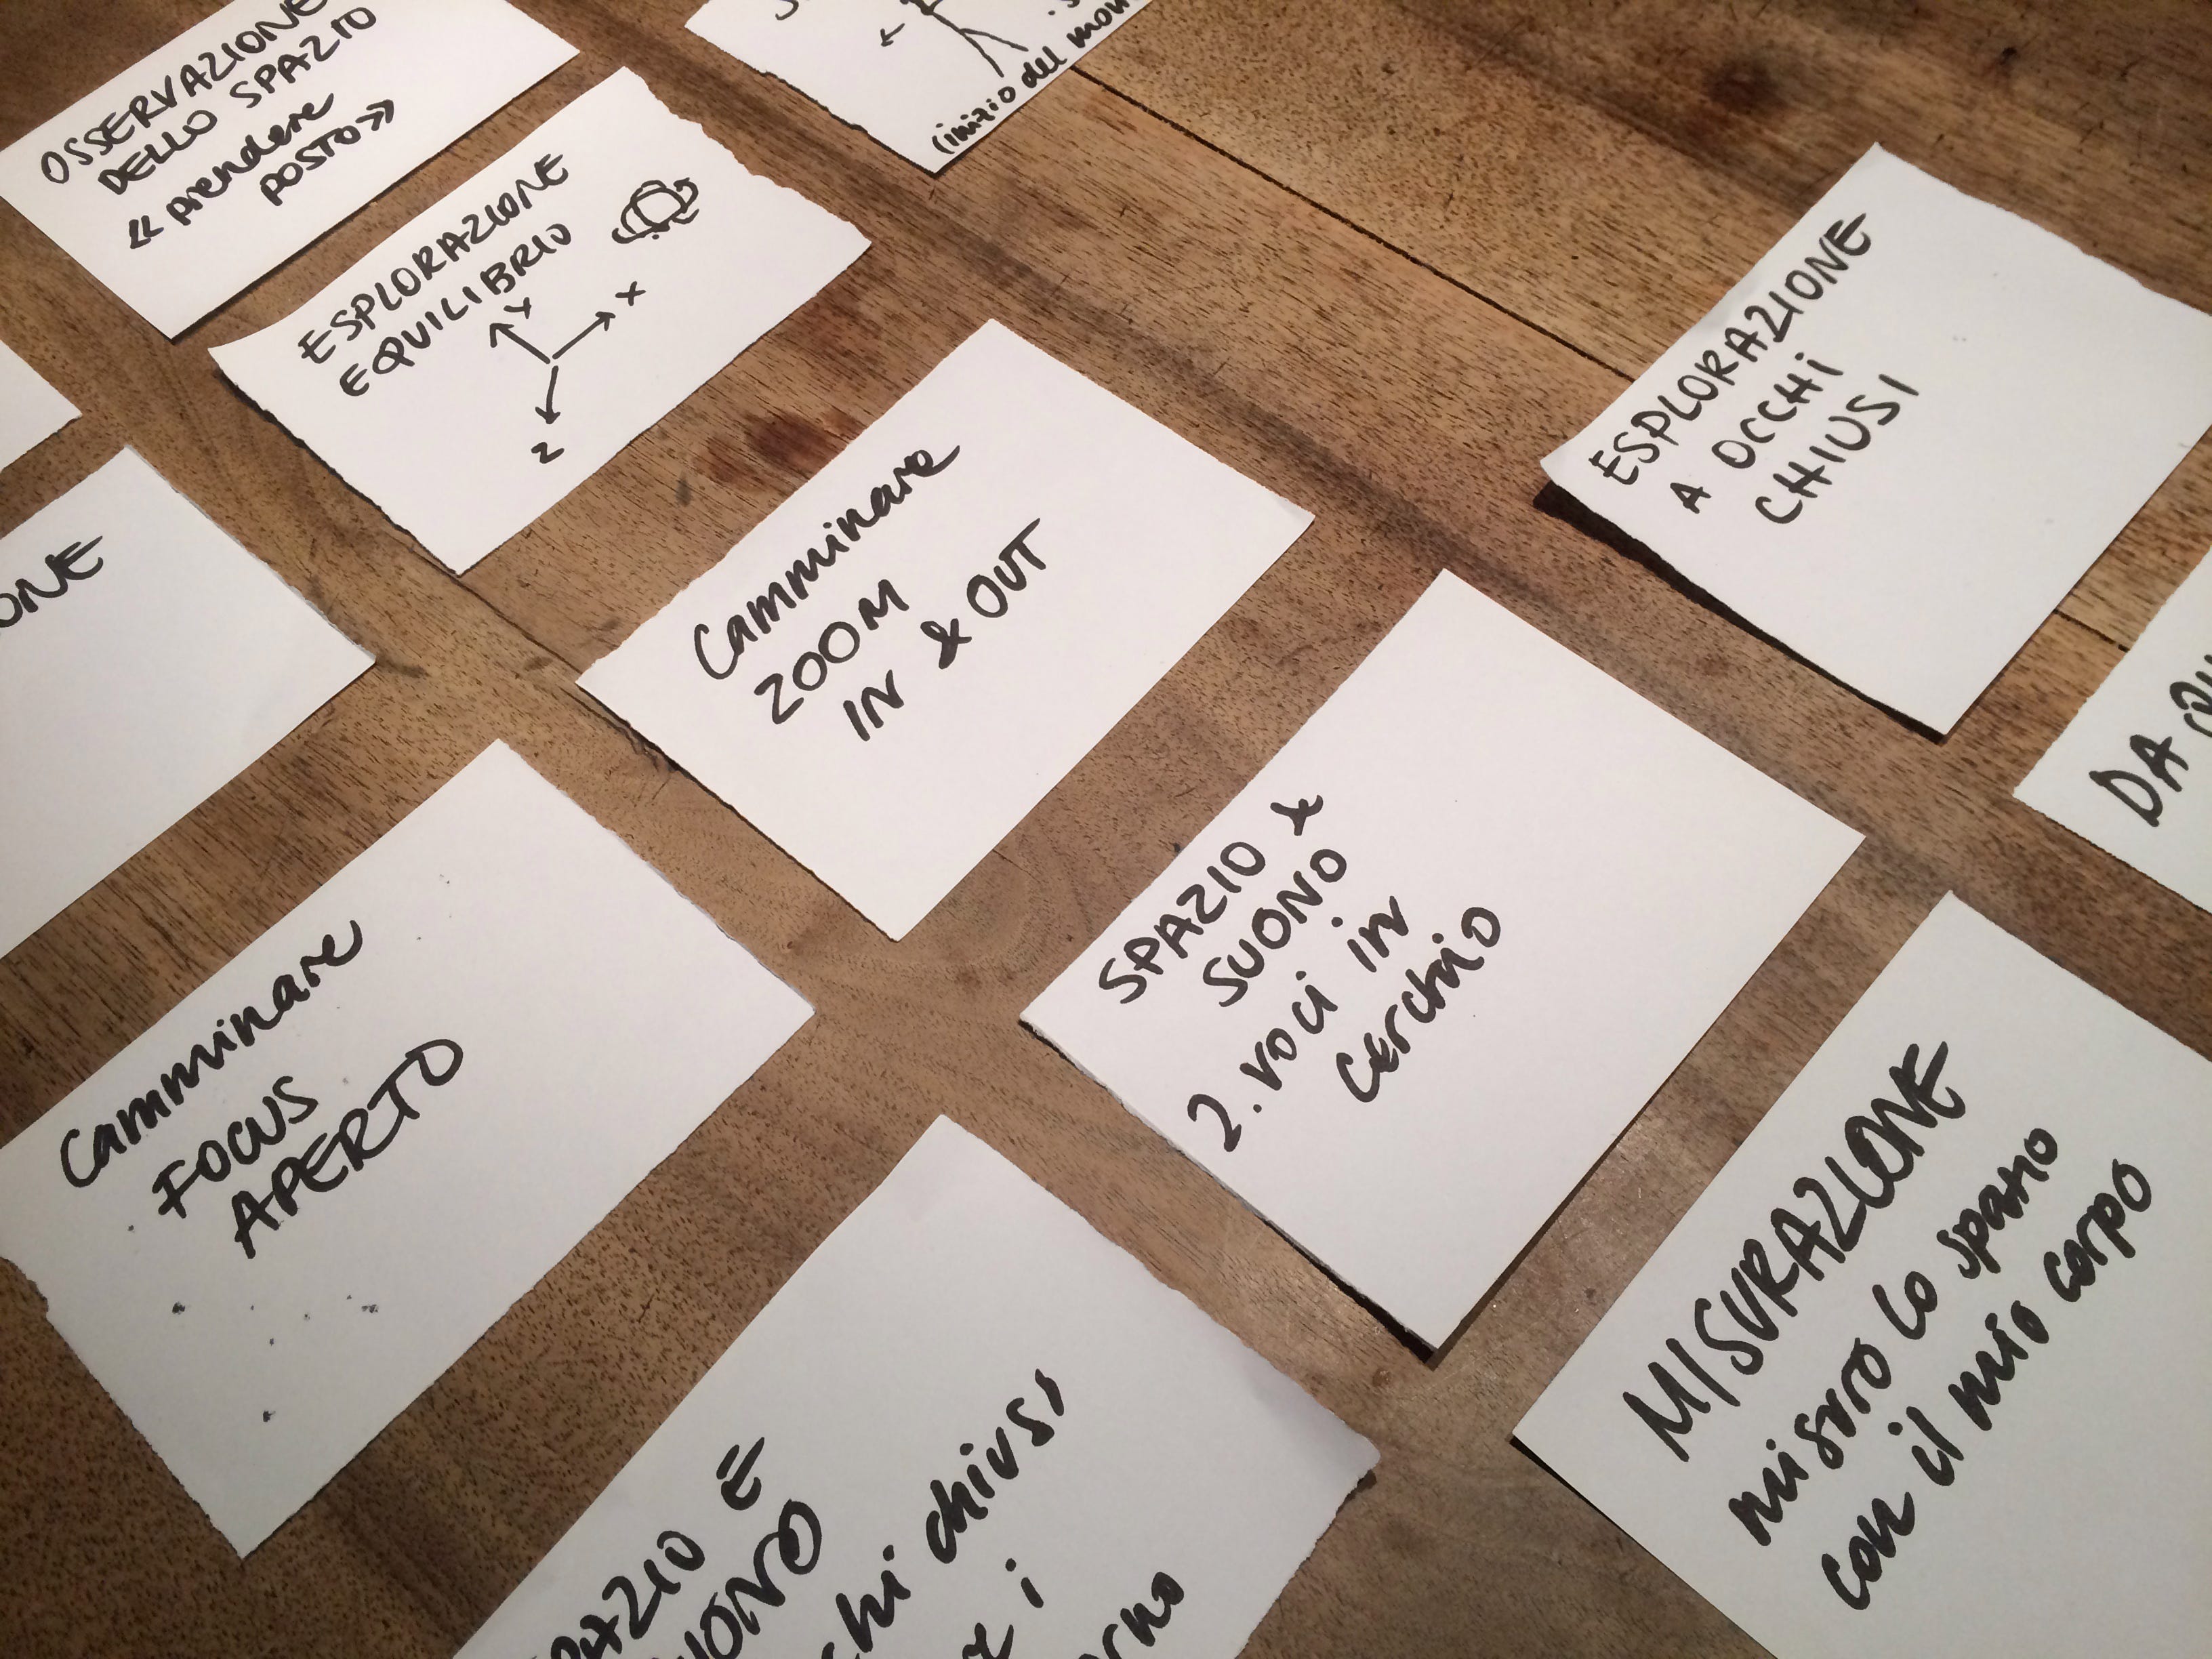 OSSERVAZIONE
DELLO SPAZIO
« prendere
POSTO »
(inizio del
ESPLORAZIONE
EQUILIBRIO
Y
X
Z
ESPLORAZIONE
A OCCHI
CHIUSI
Camminare
ZOOM
IN & OUT
DA
SPAZIO &
SUONO
2. voci in
cerchio
Camminare
FOCUS
APERTO
MISURAZIONE
misuro lo spazio
con il mio corpo
E
chiusi
i